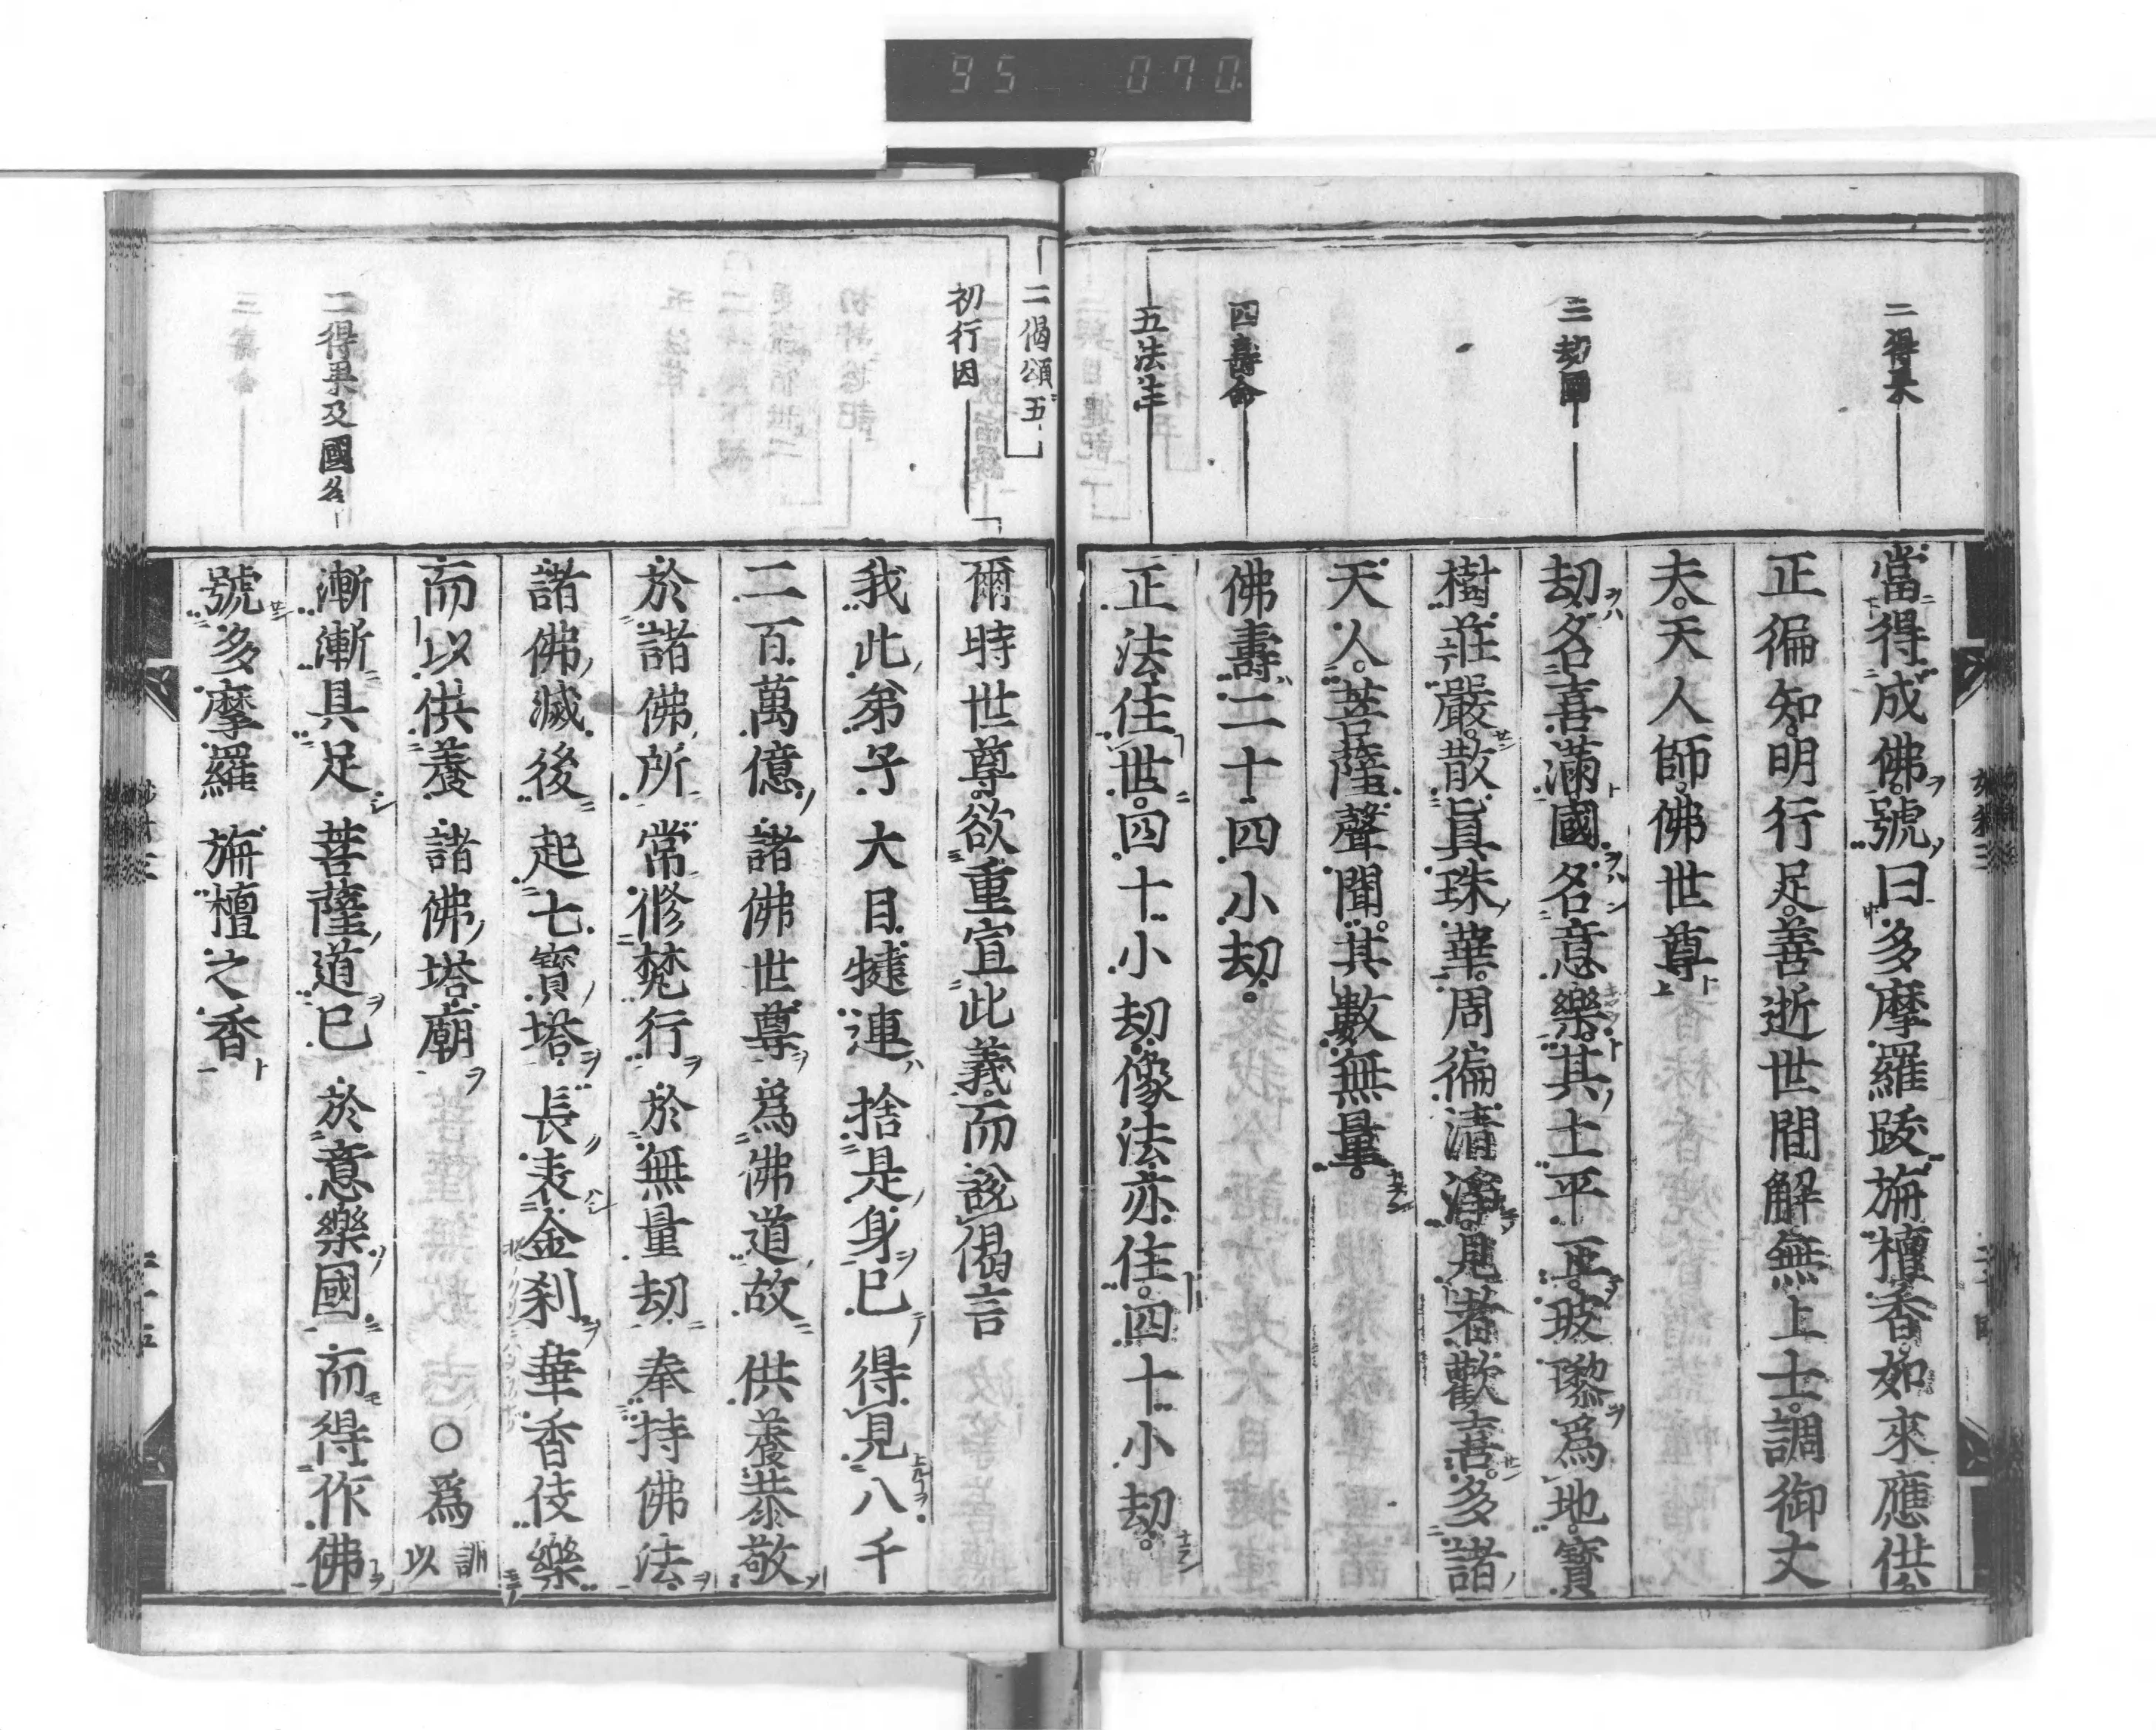 95 070
二得果
三劫國
四壽命
五法住
當得成佛號曰多摩羅跋旃檀香如來應供
正徧知明行足善逝世間解無上士調御丈
夫天人師佛世尊
劫名喜滿國名意樂其土平正玻瓈爲地寶
樹莊嚴散眞珠華周徧清淨見者歡喜多諸
天人菩薩聲聞其數無量
佛壽二十四小劫
正法住世四十小劫像法亦住四十小劫
二偈頌五
初行因
二得果及國名
爾時世尊欲重宣此義而說偈言
我此弟子 大目犍連 捨是身已 得見八千
二百萬億 諸佛世尊 爲佛道故 供養恭敬
於諸佛所 常修梵行 於無量劫 奉持佛法
諸佛滅後 起七寶塔 長表金刹 華香伎樂
而以供養 諸佛塔廟 ○爲訓以
漸漸具足 菩薩道已 於意樂國 而得作佛
號多摩羅 旃檀之香